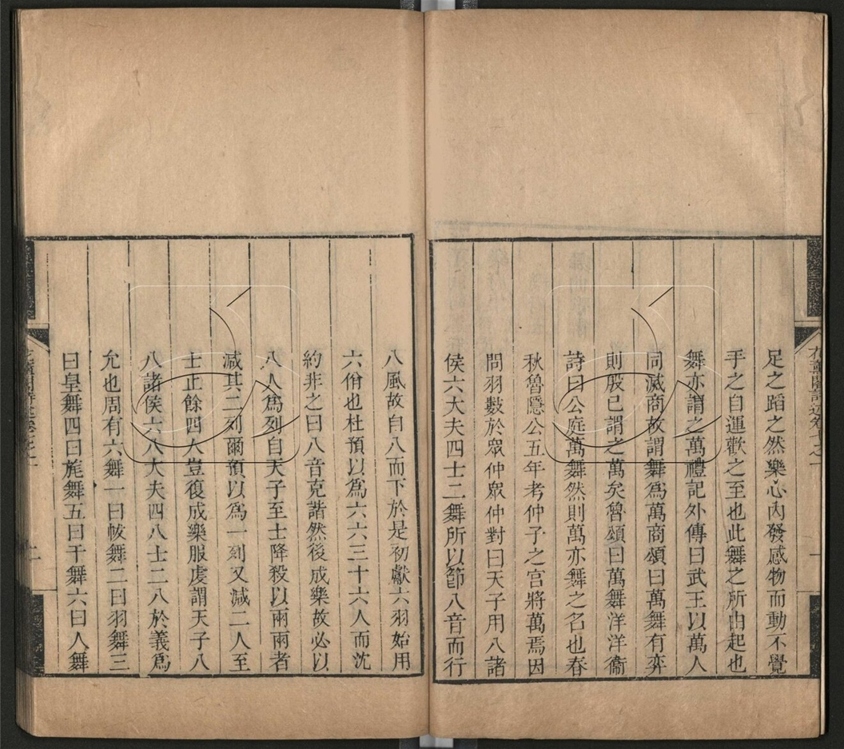 足之蹈之然樂心內發感物而動不覺
手之自運歡之至也此舞之所由起也
舞亦謂之萬禮記外傳曰武王以萬人
同滅商故謂舞爲萬商頌曰萬舞有弈
則殷已謂之萬矣魯頌曰萬舞洋洋衞
詩曰公庭萬舞然則萬亦舞之名也春
秋魯隱公五年考仲子之宮將萬焉因
問羽數於眾仲眾仲對曰天子用八諸
侯六大夫四士二舞所以節八音而行
八風故自八而下於是初獻六羽始用
六佾也杜預以爲六六三十六人而沈
約非之曰八音克諧然後成樂故必以
八人爲列自天子至士降殺以兩兩者
減其二列爾預以爲一列又減二人至
士止餘四人豈復成樂服虔謂天子八
八諸侯六八大夫四八士二八於義爲
允也周有六舞一曰帗舞二曰羽舞三
曰皇舞四曰旄舞五曰干舞六曰人舞